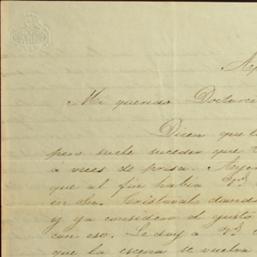 Mi querido Doctorci
Dicen que l
pero suele suceder que
a veces de prisa.
que al fin había
en dia. Cristóbal
y ya considero el gusto
con eso. Le doy a V.
que la escena se vuelva